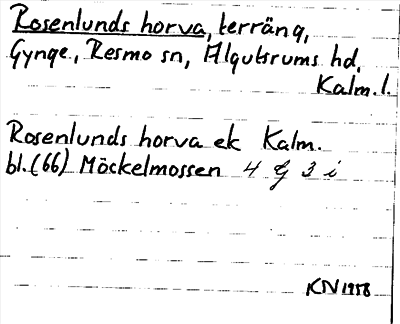 Rosenlunds horva, terräng,
Gynge, Resmo sn, Algutsrums hd,
Kalm. l.
Rosenlunds horva ek Kalm.
bl. (66) Möckelmossen 4 G 3 i
KN 1958